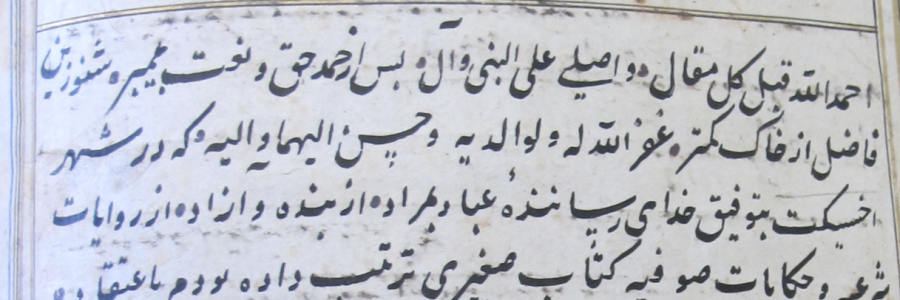 احمدالله قبل كل مقال و اصلی علی النبی و آل پس از حمد حق و نعت پیمبر شنو زین
فاضل از خاک کمتره غفر الله له و لوالدیه و حسن الیهما و الیه که در شهر
اخسیکت بتوفیق خدای رسانندهٔ عباد بمراده از بنده و ازاده از روایات
شرعی و حکایات صوفیه کتاب صغیری ترتیب داده بودم باعتقاد